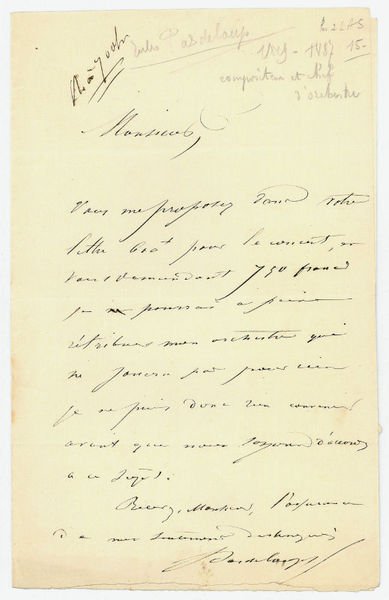 Jules Pasdeloup
1819 - 1887 15-
compositeur et chef
d'orchestre
Monsieur,
Vous me proposez dans votre
lettre 600f pour le concert, en
vous demandant 750 francs
je pourrais à peine
rétribuer mon orchestre qui
ne jouera pas pour rien
je ne puis donc rien convenir
avant que nous soyons d'accord
a ce sujet.
Recevez, Monsieur, l'assurance
de mes sentiments distingués
Pasdeloup